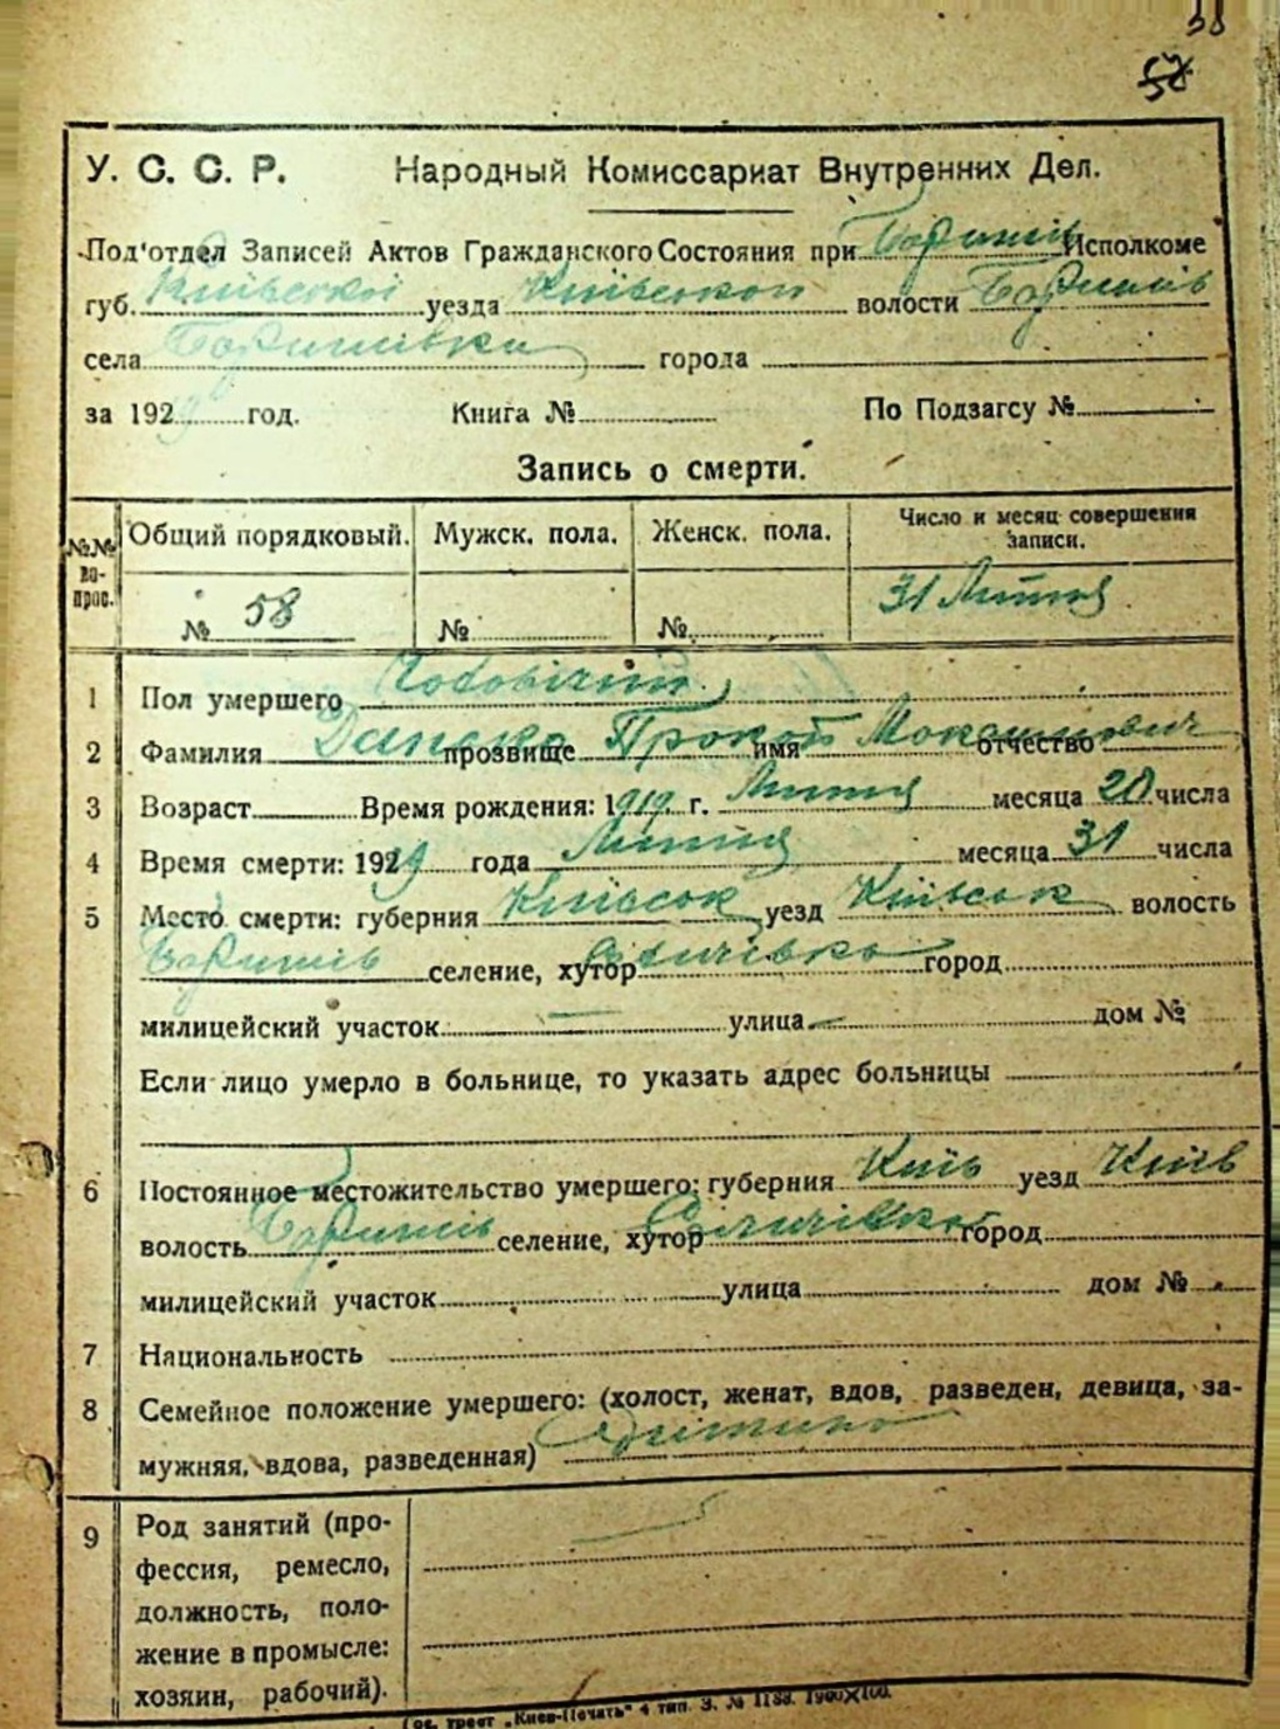 58
У. С. С. Р. Народный Комиссариат Внутренних Дел.
Под'отдел Записей Актов Гражданского Состояния при Баришів Исполкоме
губ. Київської уезда Київської волости Баришів
села Баришівка города
за 192 год. Книга № По Подзагсу №
Запись о смерти.
№№ вопрос. Общий порядковый. Мужск. пола. Женск. пола. Число и месяц совершения записи.
№ 58 № № 31 Липня
1 Пол умершего Чоловічий
2 Фамилия прозвище Прокоп имя отчество
3 Возраст Время рождения: 1919 г. Липня месяца 20 числа
4 Время смерти: 1929 года Липня месяца 31 числа
5 Место смерти: губерния Київськ уезд Київськ волость
Баришів селение, хутор город
милицейский участок — улица — дом №
Если лицо умерло в больнице, то указать адрес больницы
6 Постоянное местожительство умершего: губерния Київ уезд Київ
волость Баришів селение, хутор город
милицейский участок улица дом №
7 Национальность
8 Семейное положение умершего: (холост, женат, вдов, разведен, девица, за-
мужняя, вдова, разведенная) Дитина
9 Род занятий (про-
фессия, ремесло,
должность, поло-
жение в промысле:
хозяин, рабочий).
Гос. трест „Киев-Печать" 4 тип. З. № 1183. 1900X100.